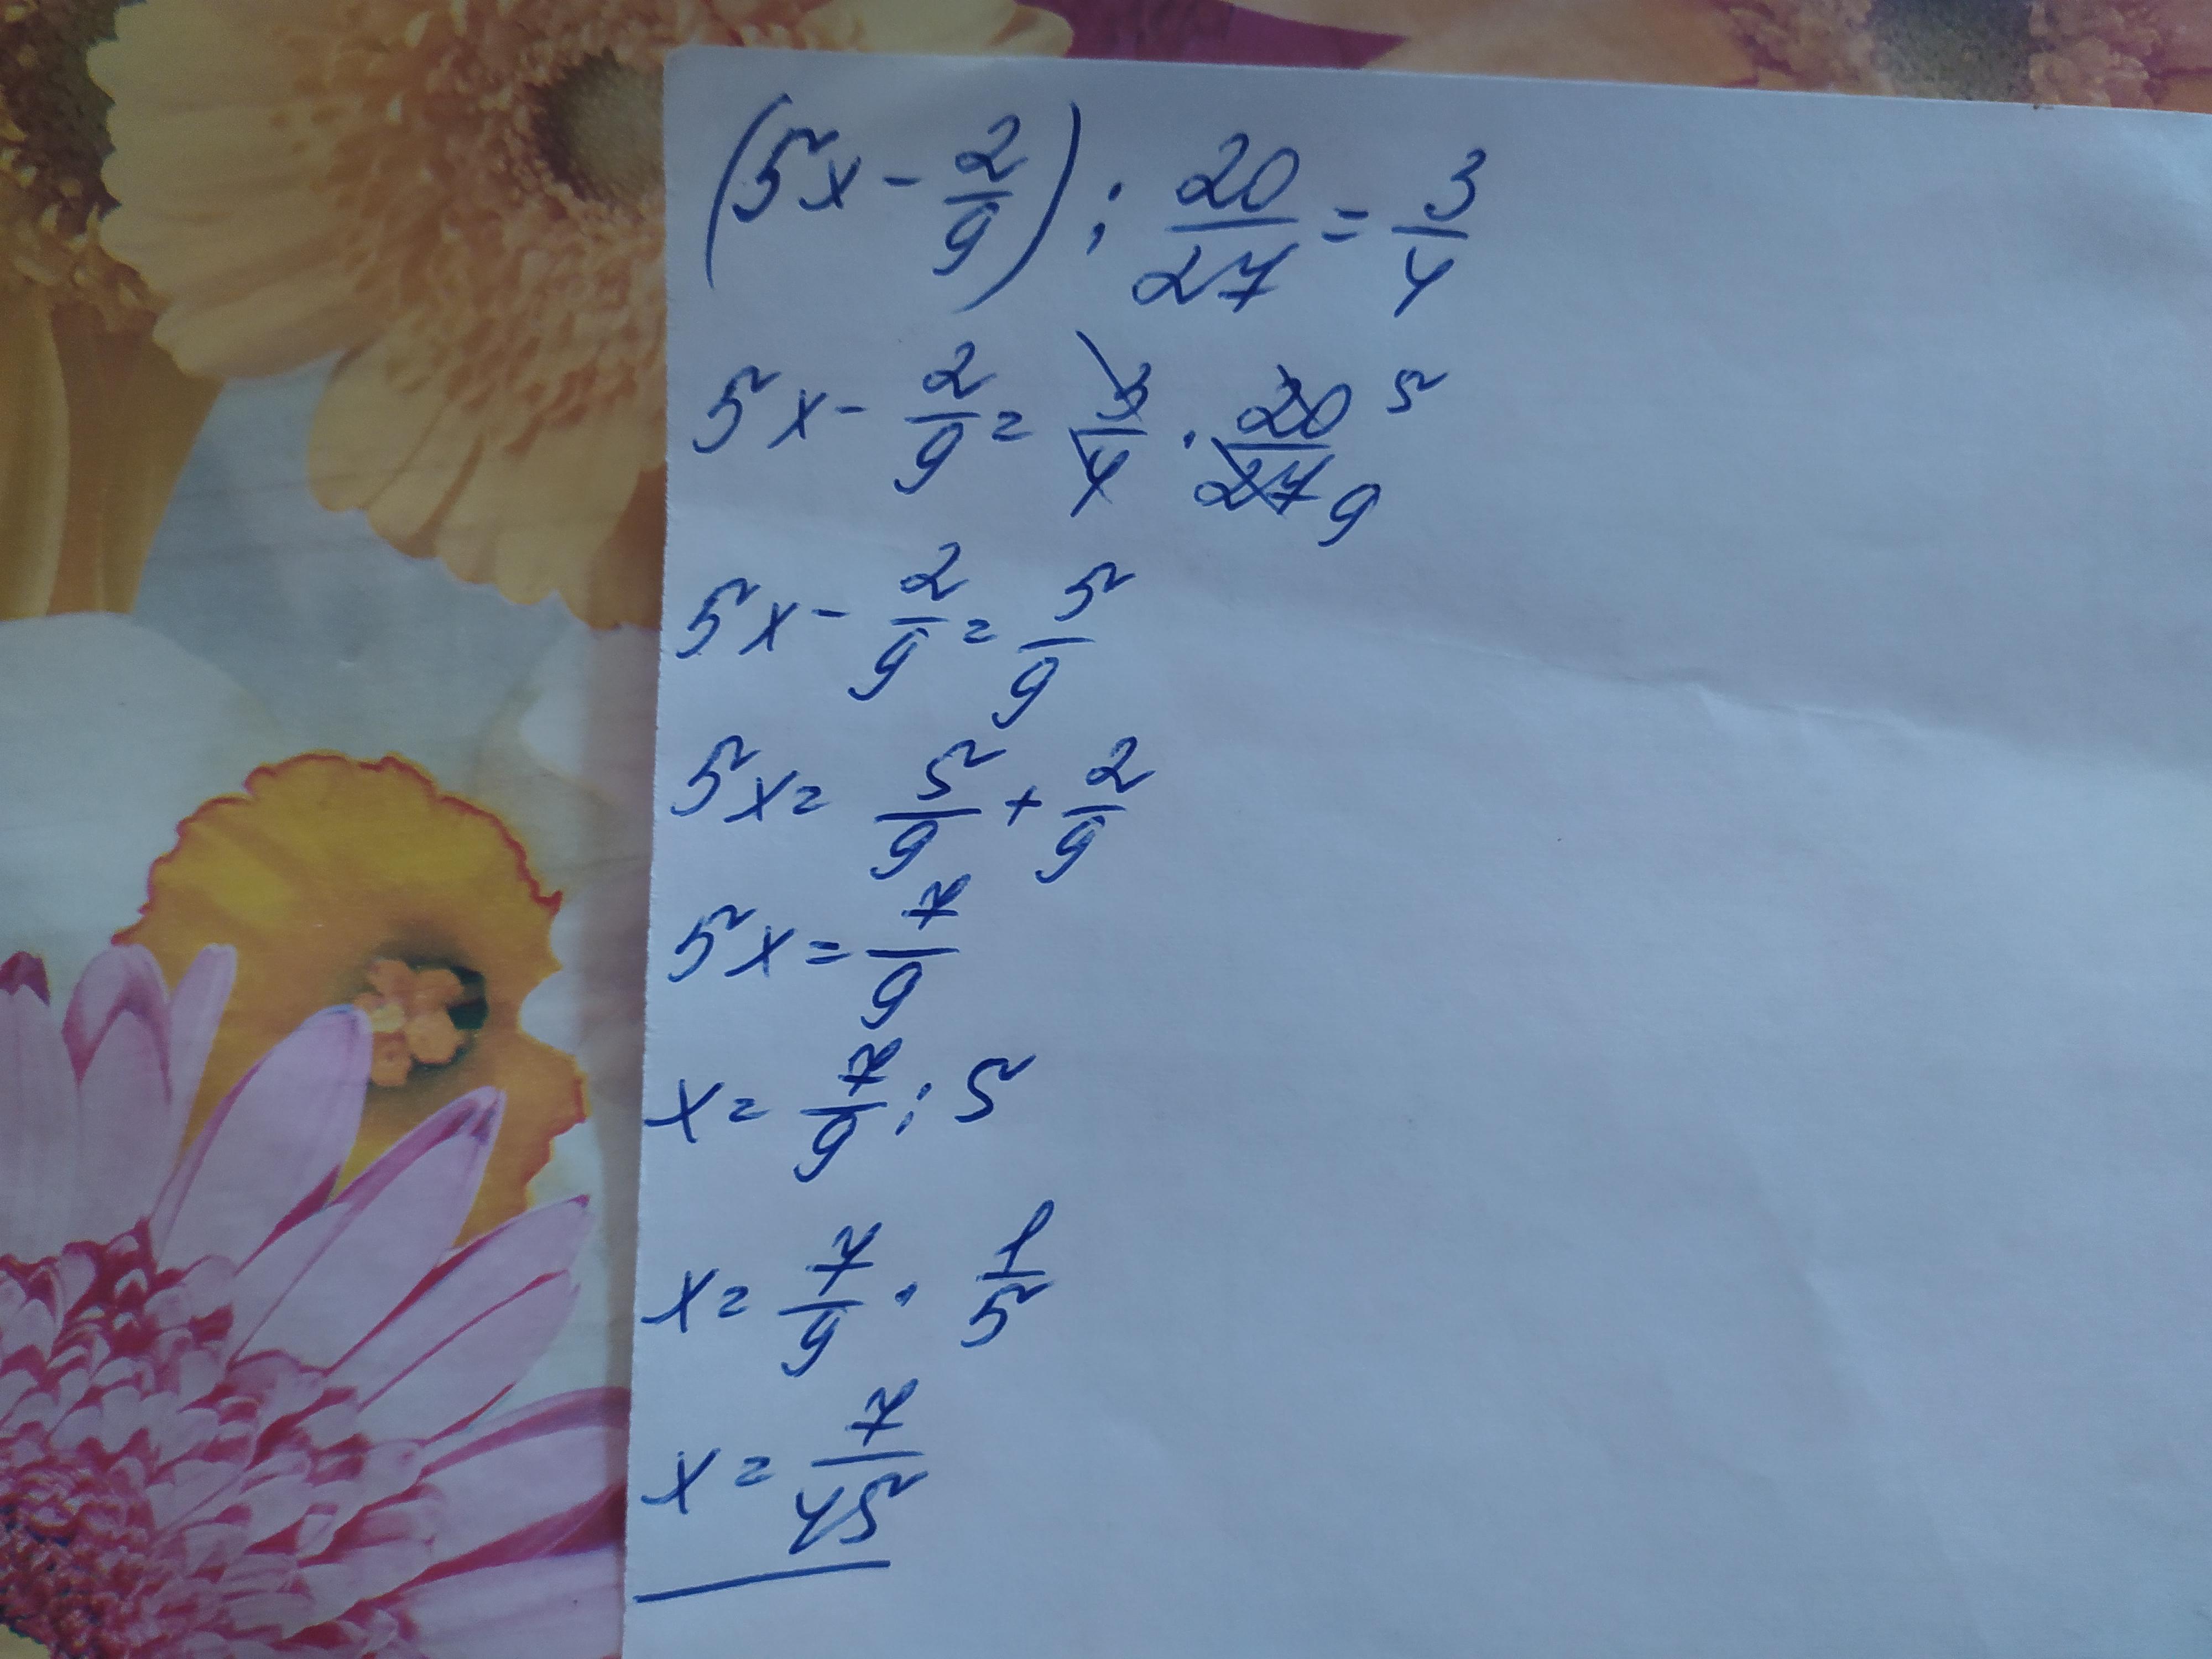 (5x - 2/9) : 20/27 = 3/4
5x - 2/9 = 3/4 · 20/27 5 9
5x - 2/9 = 5/9
5x = 5/9 + 2/9
5x = 7/9
x = 7/9 : 5
x = 7/9 · 1/5
x = 7/45